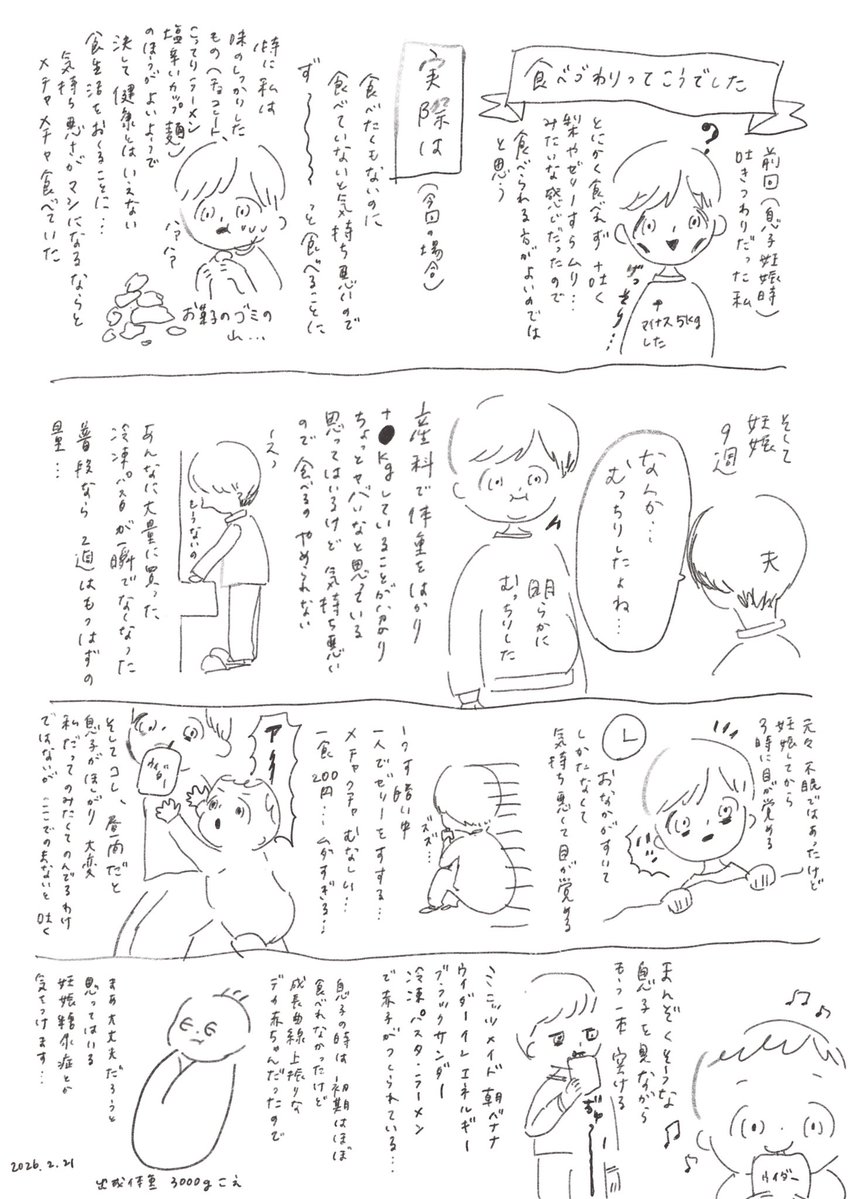 食べづわりってこうでした
前回(息子妊娠時)
吐きつわりだった私
?
とにかく食べれず+吐く
梨やゼリーすらムリ…
みたいな感じだったので
食べられる方がよいのでは
と思う
げっそり…
↑
マイナス5kg
した
実際は
(今回の場合)
食べたくもないのに
食べていないと気持ち悪いので
ず〜〜〜っと食べることに
特に私は
味のしっかりした
もの(チョコレート、
こってりラーメン
塩辛いカップ麺)
のほうがよいようで
決して健康とはいえない
食生活をおくることに…
気持ち悪さがマシになるならと
メチャメチャ食べていた
お菓子のゴミの
山…
そして
妊娠
9週
夫
なんか…
むっちりしたよね…
明らかに
むっちりした
産科で体重をはかり
+●kgしていることが分かり
ちょっとヤバいなと思っている
思ってはいるけど気持ち悪い
ので食べるのやめられない
〜え〜
もうないの
あんなに大量に買った
冷凍パスタが一瞬でなくなった
普段なら2週はもつはずの
量…
元々不眠ではあったけど
妊娠してから
3時に目が覚める
おなかがすいて
しかたなくて
気持ち悪くて目が覚める
うす暗い中
一人でゼリーをすする…
メチャクチャむなしい…
一食200円…ムダすぎる…
ズズ…
アー
ウイダー
そしてコレ、昼間だと
息子がほしがり大変
私だってのみたくてのんでるわけ
ではないがここでのまないと吐く
まんぞくそうな
息子を見ながら
もう一本空ける
ウイダー
ぢゅーっ
ミニッツメイド朝バナナ
ウイダーインエネルギー
ブラックサンダー
冷凍パスタ・ラーメン
で赤子がつくられている…
息子の時は初期はほぼ
食べれなかったけど
成長曲線上振りな
デカ赤ちゃんだったので
まあ大丈夫だろうと
思ってはいる
妊娠糖尿症とか
気をつけます…
出生体重 3000gこえ
2026.2.21